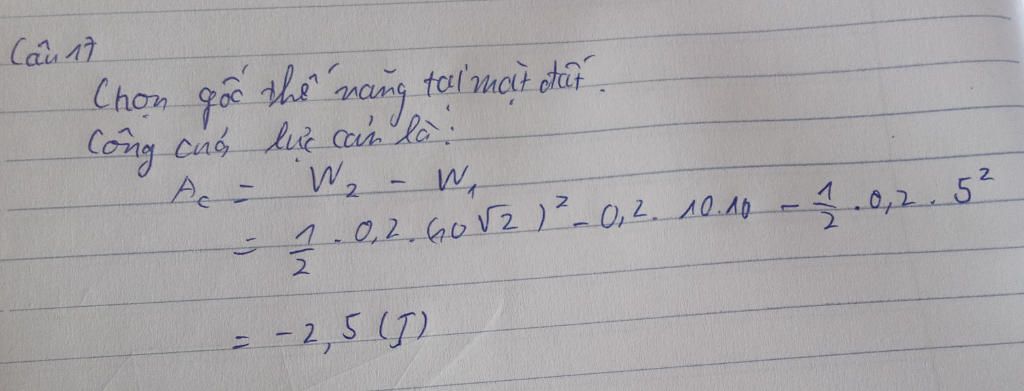 Câu 17
Chọn gốc thế năng tại mặt đất.
Công của lực cản là:
A_c = W_2 - W_1
= 1/2 . 0,2 . (10√2)² - 0,2 . 10.10 - 1/2 . 0,2 . 5²
= -2,5 (J)